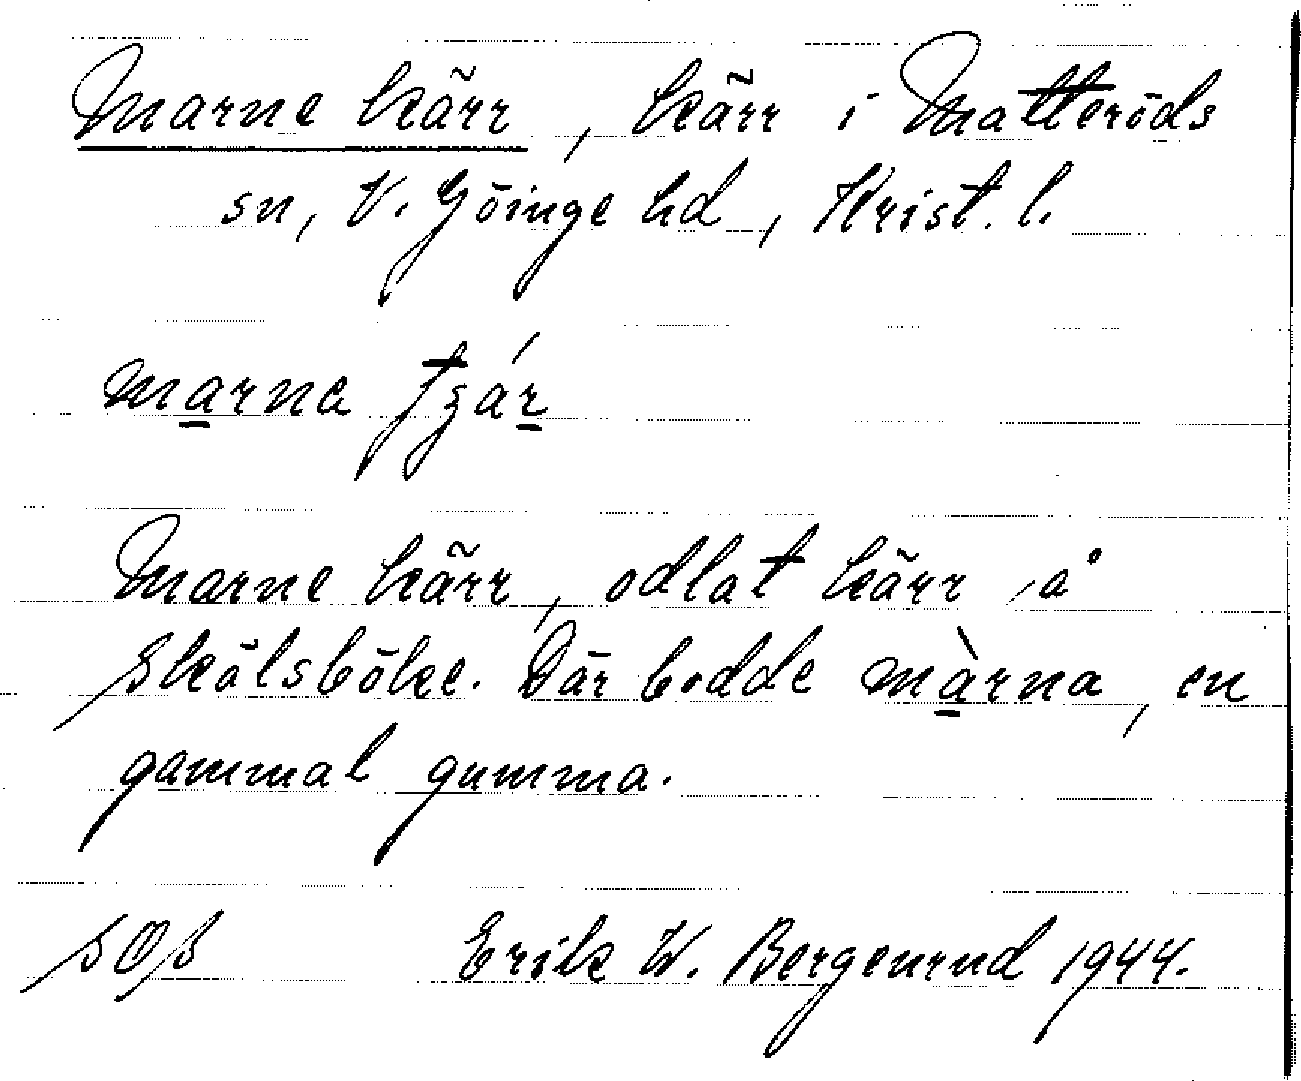 Marne kärr, kärr i Matteröds
sn, V. Göinge hd, Krist. l.
marna tʒár
Marne kärr, odlat kärr å
Skölsböke. Där bodde màrna, en
gammal gumma.
Erik W. Bergenrud 1944.